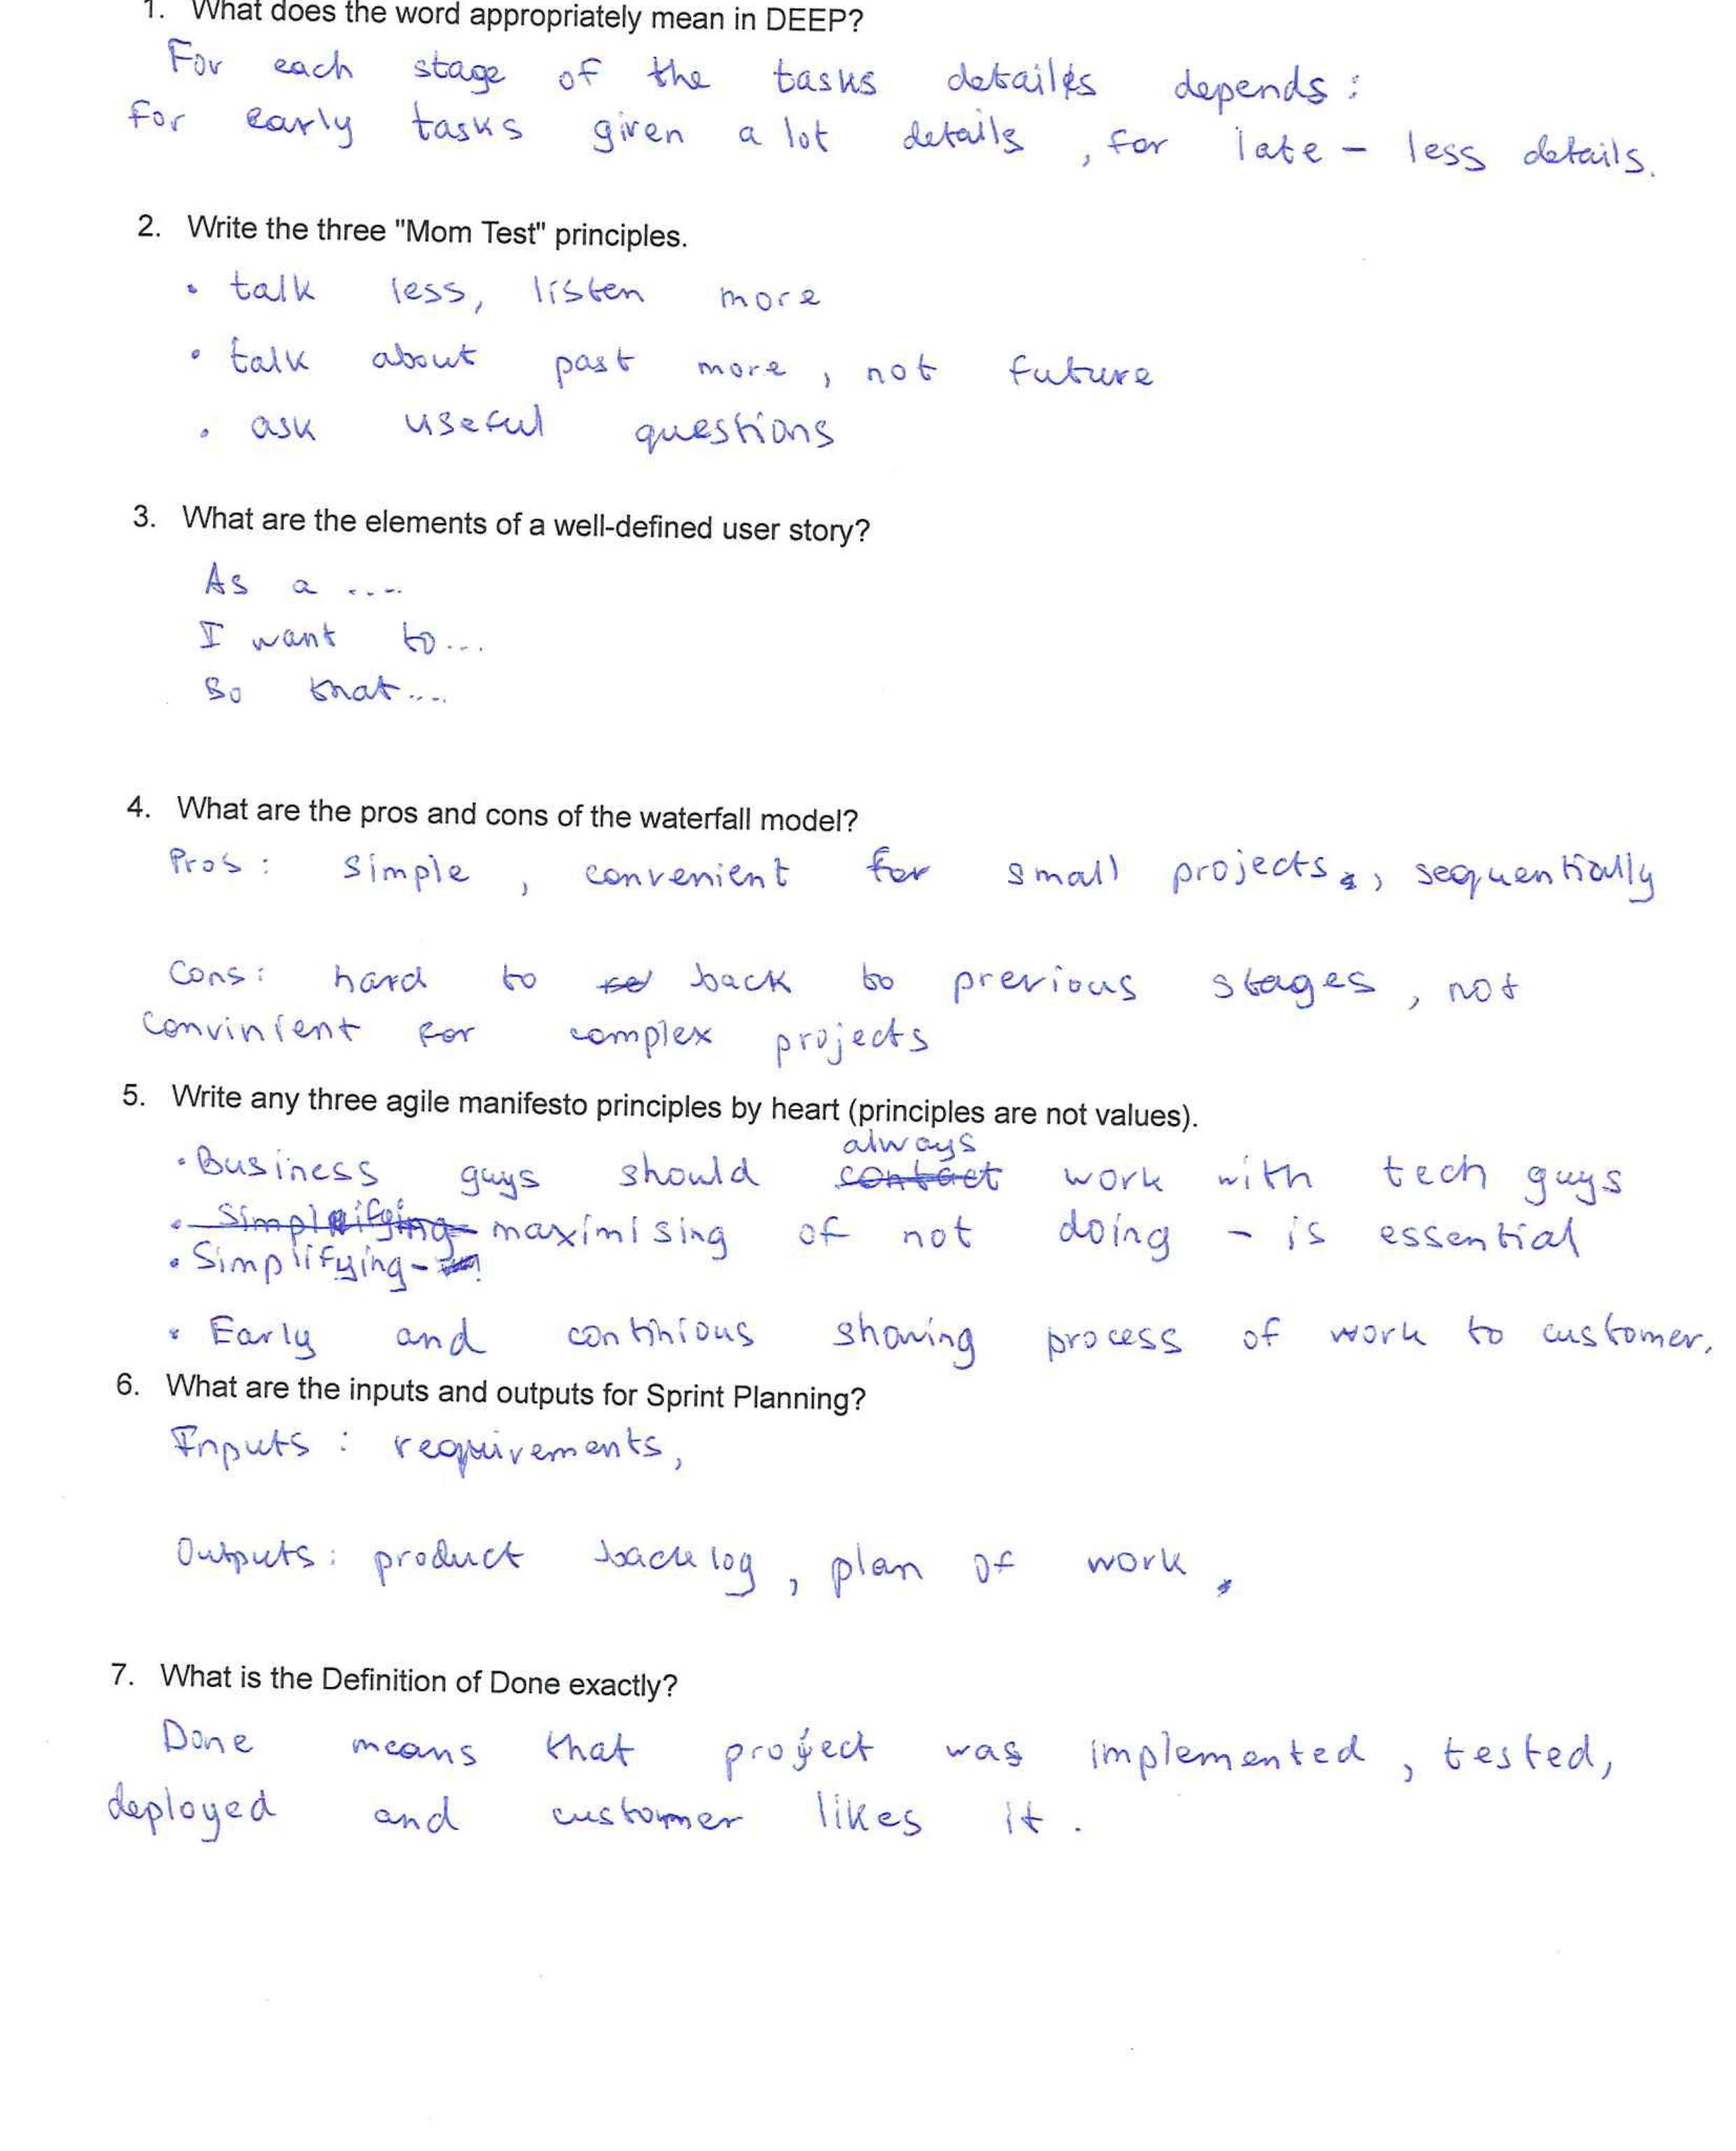 1. What does the word appropriately mean in DEEP?
For each stage of the tasks details depends :
for early tasks given a lot details , for late - less details.
2. Write the three "Mom Test" principles.
• talk less, listen more
• talk about past more , not future
• ask useful questions
3. What are the elements of a well-defined user story?
As a ....
I want to...
So that....
4. What are the pros and cons of the waterfall model?
Pros : simple , convenient for small projects , sequentially
Cons : hard to back to previous stages , not
convinient for complex projects
5. Write any three agile manifesto principles by heart (principles are not values).
always
• Business guys should contact work with tech guys
• Simplifying - maximising of not doing - is essential
• Simplifying -
• Early and continious showing process of work to customer.
6. What are the inputs and outputs for Sprint Planning?
Inputs : requirements,
Outputs : product backlog , plan of work
7. What is the Definition of Done exactly?
Done means that project was implemented , tested,
deployed and customer likes it .